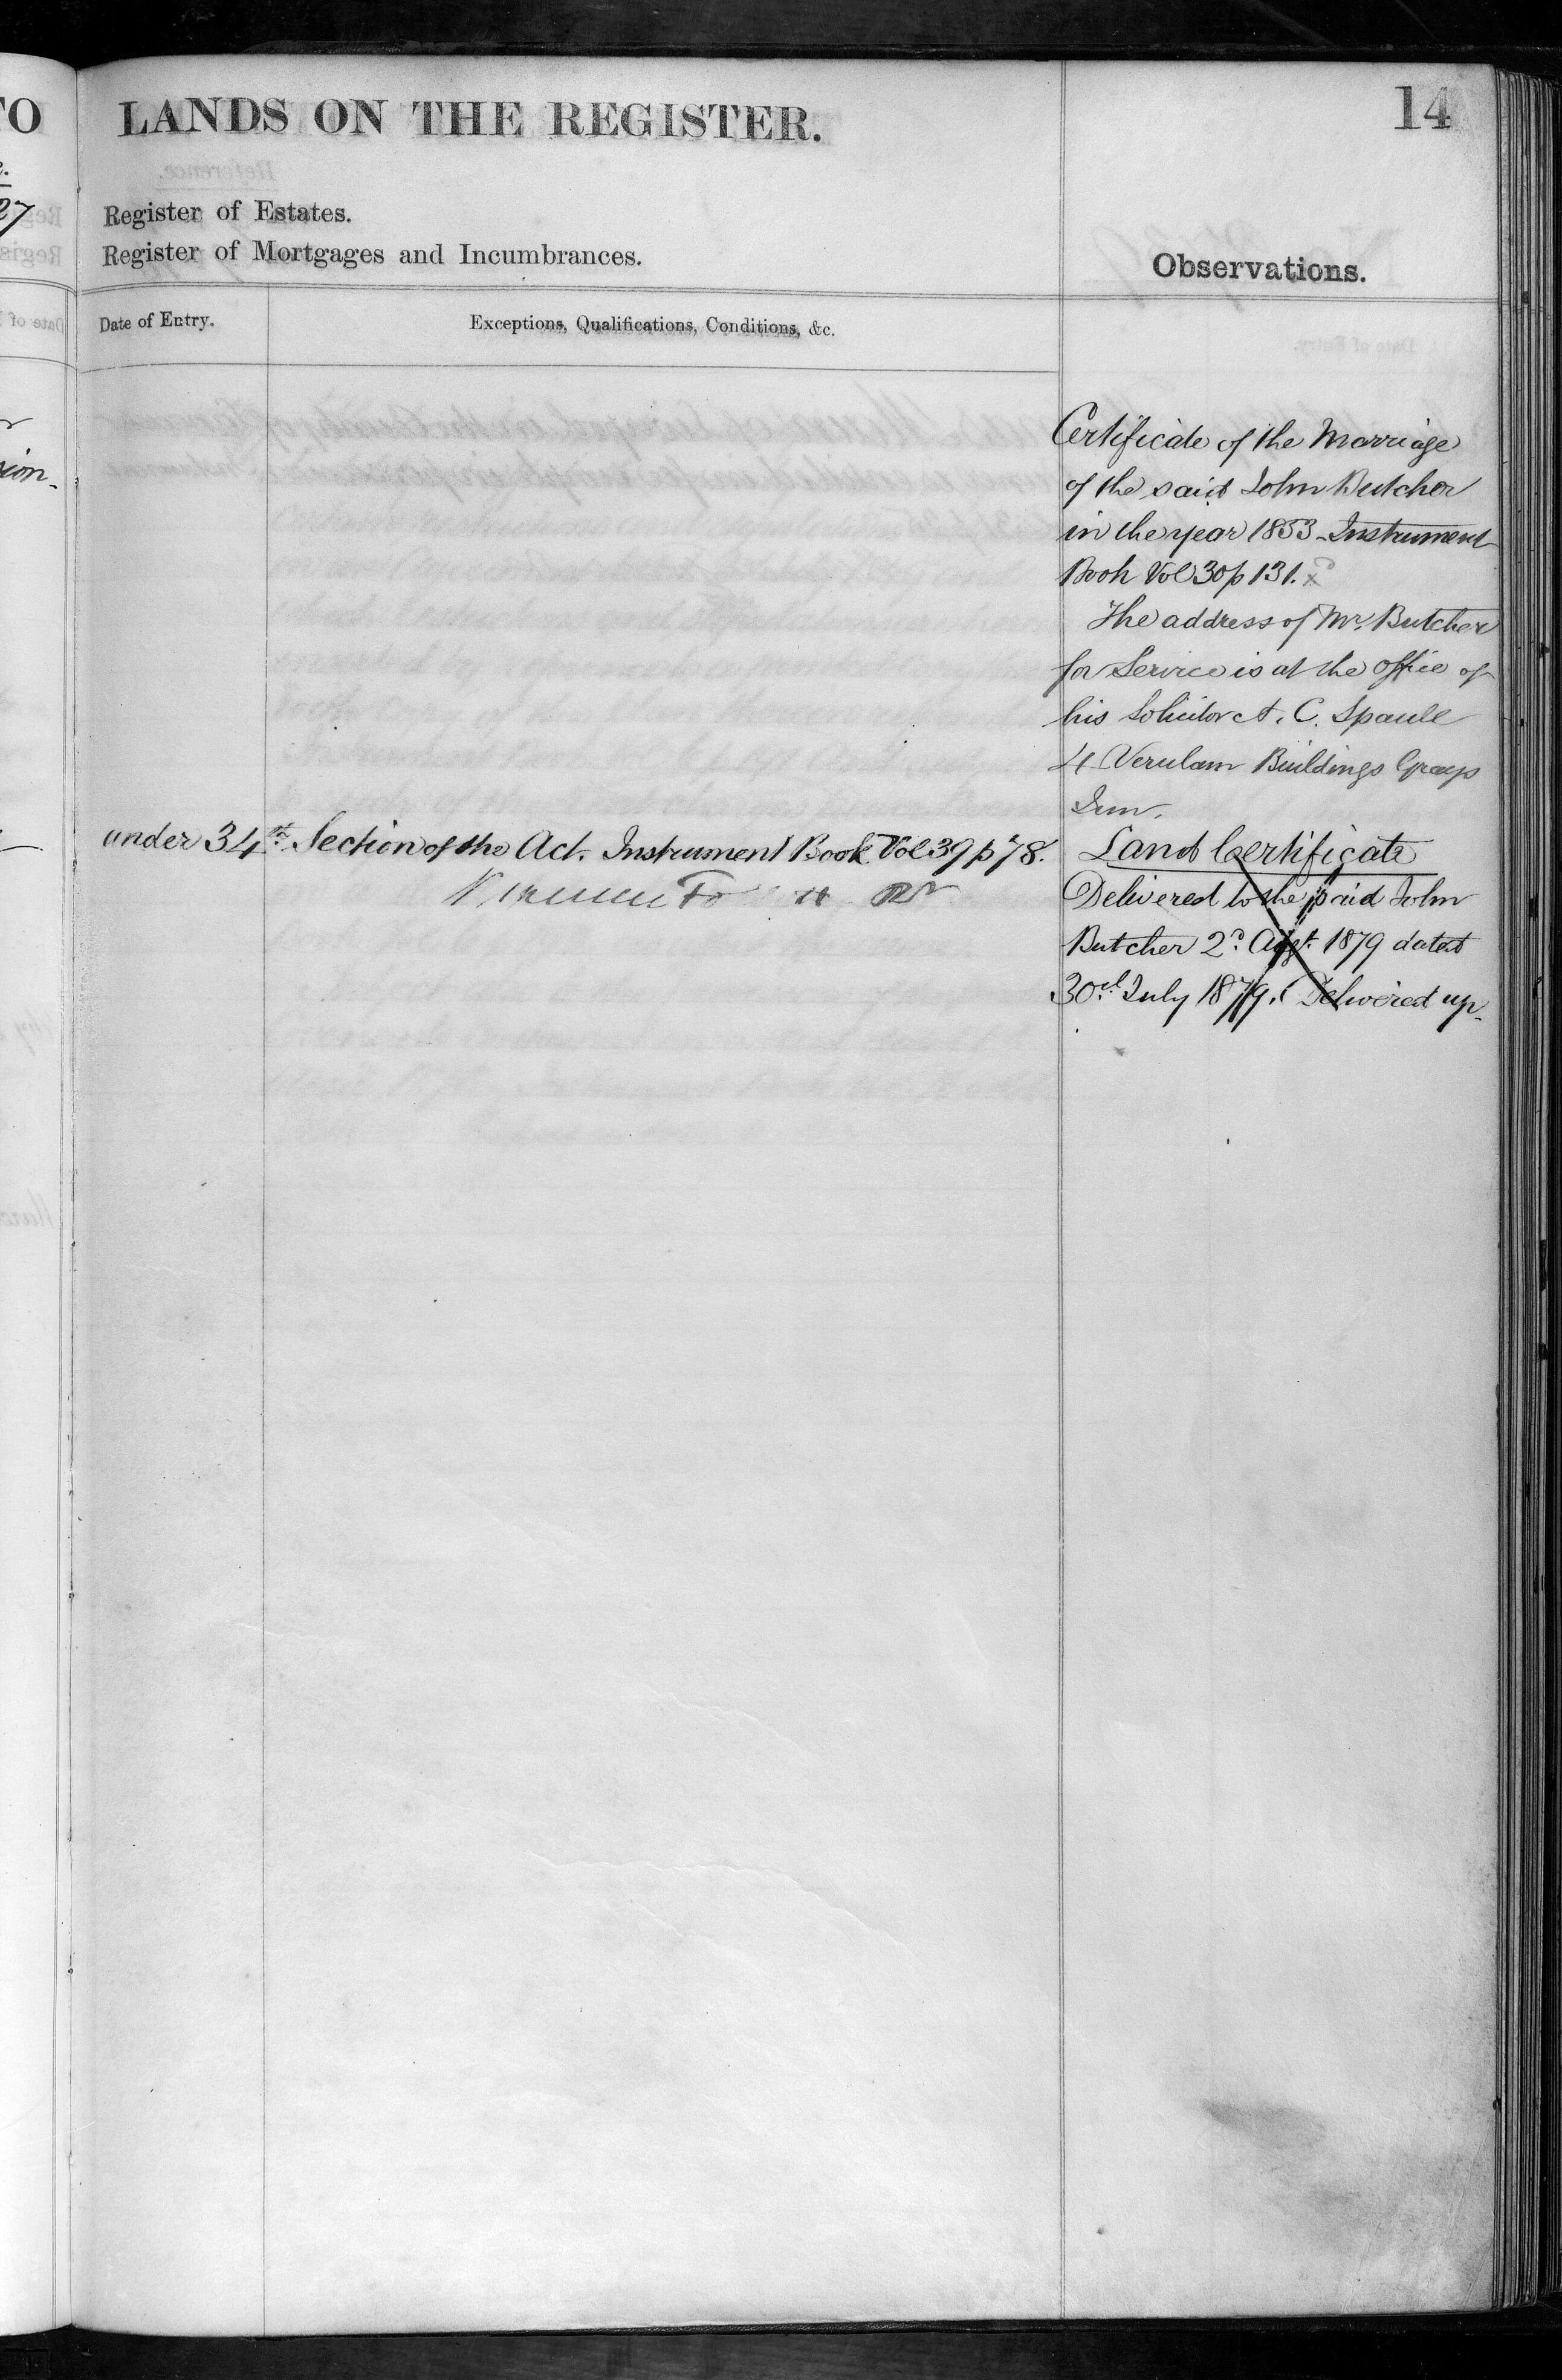 TO LANDS ON THE REGISTER.
14
27
Register of Estates.
Register of Mortgages and Incumbrances.
Observations.
Date of Entry.
Exceptions, Qualifications, Conditions, &c.
Certificate of the Marriage
of the said John Butcher
in the year 1853 - Instrument
Book Vol 30 p 131.
The address of Mr. Butcher
for Service is at the office of
his Solicitor A. C. Spaull
4 Verulam Buildings Grays
Inn.
under 34th Section of the Act. Instrument Book Vol 39 p 78.
Land Certificate
Delivered to the said John
Butcher 2d. Augt. 1879 dated
30th July 1879. Delivered up.